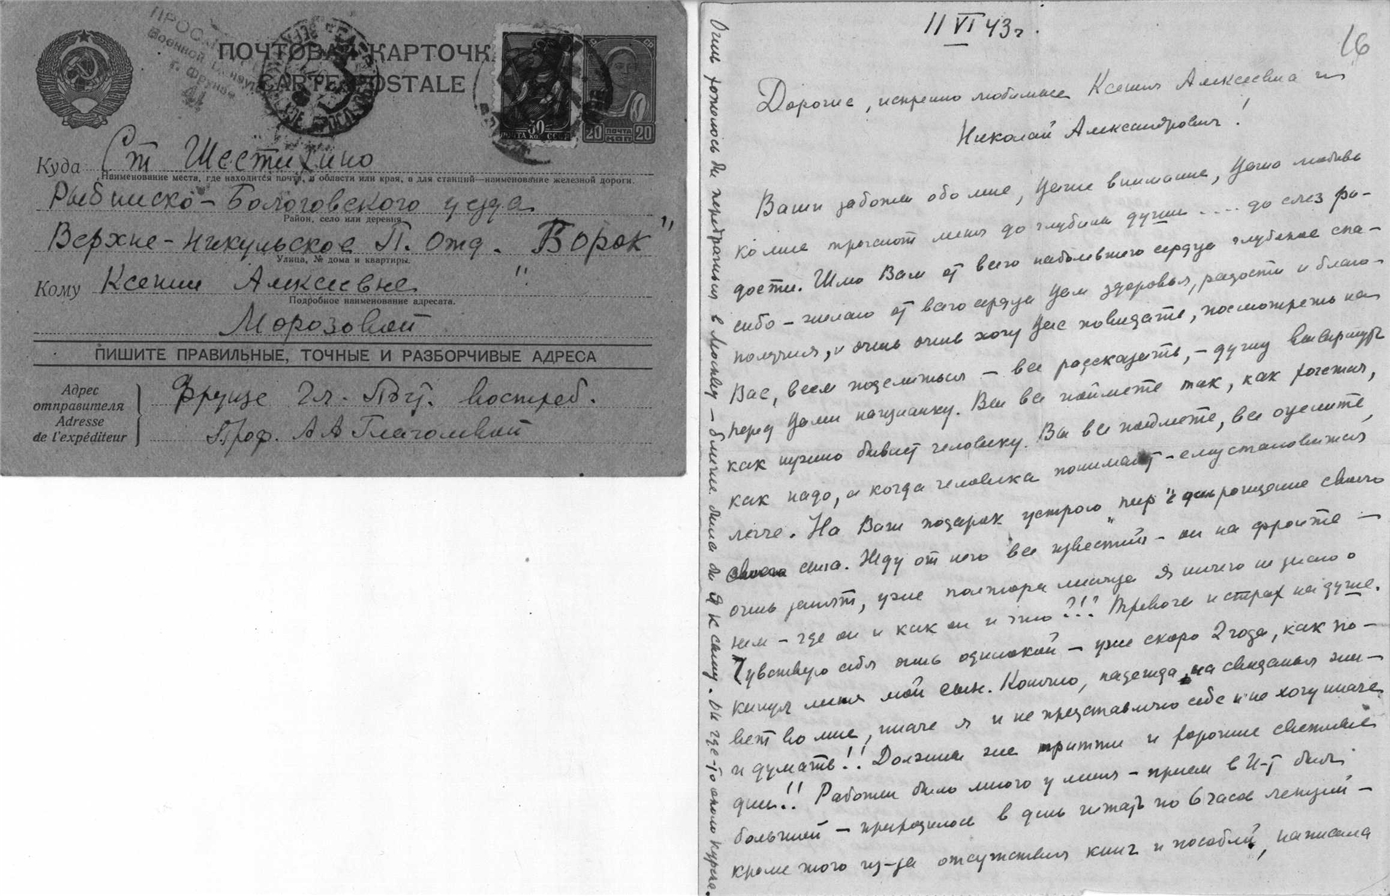 ПРОС
Военной Цензурой
г. Фрунзе
41
ПОЧТОВАЯ КАРТОЧК
CARTE POSTALE
50
ПОЧТА
20 ПОЧТА 20
КОП
Куда Ст Шестихино
Наименование места, где находится почта, и области или края, а для станций—наименование железной дороги.
Рыбинско-Бологовского уезда
Район, село или деревня.
Верхне-Никульское П. отд. "Борок"
Улица, № дома и квартиры.
Кому Ксении Алексеевне
Подробное наименование адресата.
Морозовой
ПИШИТЕ ПРАВИЛЬНЫЕ, ТОЧНЫЕ И РАЗБОРЧИВЫЕ АДРЕСА
Адрес отправителя
Adresse de l'expéditeur
Фрунзе Гл. Почт. востреб.
Проф. А А Глаголевой
11 VI 43 г.
16
Дорогие, искренно любимые Ксения Алексеевна и
Николай Александрович!
Ваши заботы обо мне, Ваше внимание, Ваша любовь
ко мне трогают меня до глубины души .... до слез ра-
дости. Шлю Вам от всего наболевшего сердца глубокое спа-
сибо – желаю от всего сердца Вам здоровья, радости и благо-
получия, и очень очень хочу Вас повидать, посмотреть на
Вас, всем поделиться – все рассказать, – душу вывернуть
перед Вами наизнанку. Вы все поймете так, как хочется,
как нужно бывает человеку. Вы все поймете, все оцените,
как надо, а когда человека понимают – ему становится
легче. На Ваш подарок устрою пир в день рождение своего
сына. Жду от него все "известий" – он на фронте –
очень занят, уже полтора месяца я ничего не знаю о
нем – где он и как он и что?!! Тревога и страх на душе.
Чувствую себя очень одинокой – уже скоро 2 года, как по-
кинул меня мой сын. Конечно, надежда на свидания жи-
вет во мне, иначе я и не представляю себе и не хочу иначе
и думать!! Должны же притти и хорошие светлые
дни!! Работы было много у меня – прием в И-т был
большой – приходилось в день читать по 6 часов лекций –
кроме того из-за отсутствия книг и пособий, написала
Очень хотелось бы перебраться в Москву – ближе была бы я к сыну. Он где-то около Курска.